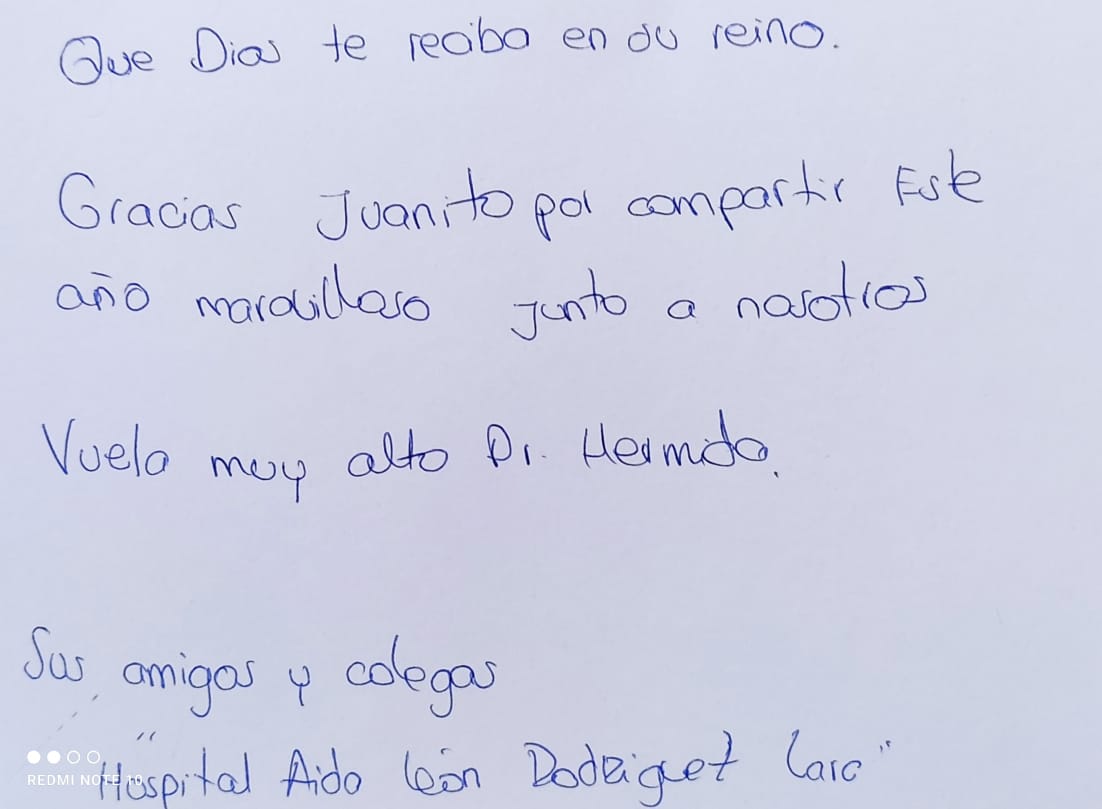 Que Dios te reciba en su reino.
Gracias Juanito por compartir Este
año maravilloso junto a nosotros
Vuela muy alto Dr. Hermida.
Sus amigos y colegas
"Hospital Aida León Rodríguez Lara"
REDMI NOTE 10